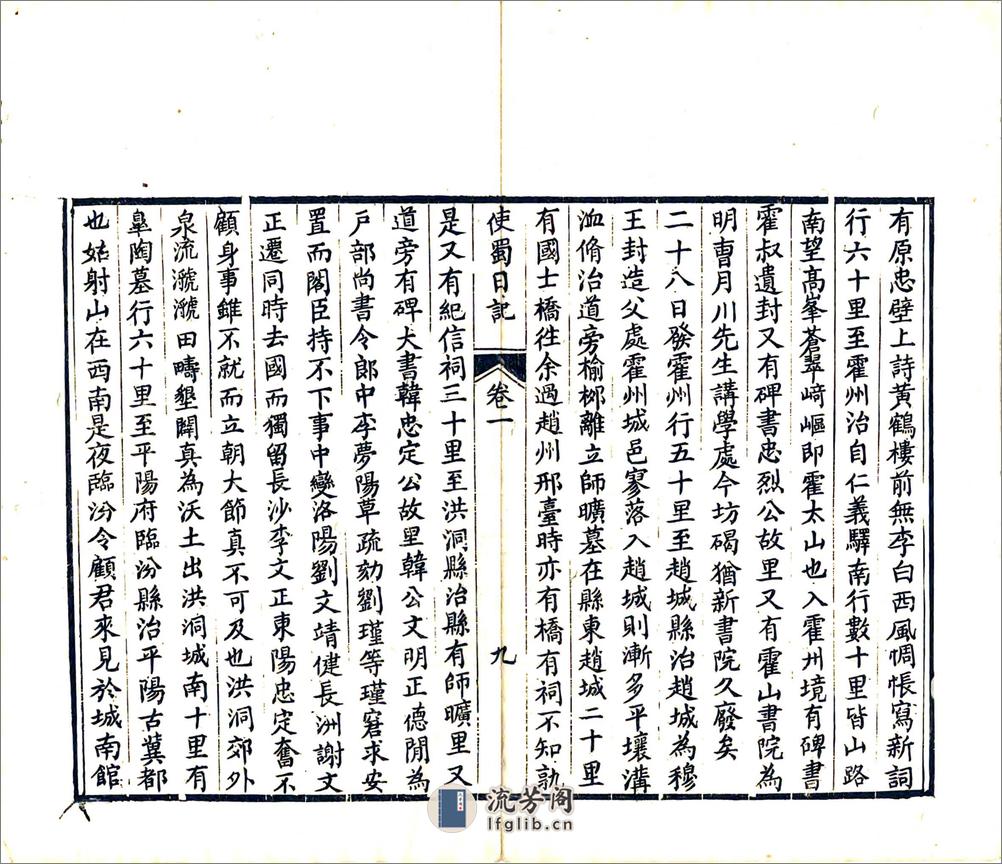 有原忠壁上詩黃鶴樓前無李白西風惆帳寫新詞
行六十里至霍州治自仁義驛南行數十里皆山路
南望高峯蒼翠﨑嶇即霍太山也入霍州境有碑書
霍叔遺封又有碑書忠烈公故里又有霍山書院為
明曺月川先生講學處今坊碣猶新書院久廢矣
二十八日發霍州行五十里至趙城縣治趙城為穆
王封造父處霍州城邑寥落入趙城則漸多平壤溝
洫脩治道旁榆栁離立師曠墓在縣東趙城二十里
有國士橋徃余過趙州邢臺時亦有橋有祠不知孰
使蜀日記 卷一 九
是又有紀信祠三十里至洪洞縣治縣有師曠里又
道旁有碑大書韓忠定公故里韓公文明正德間為
戶部尚書令郎中李夢陽草疏劾劉瑾等瑾窘求安
置而閣臣持不下事中變洛陽劉文靖健長洲謝文
正遷同時去國而獨留長沙李文正東陽忠定奮不
顧身事雖不就而立朝大節真不可及也洪洞郊外
泉流㶁㶁田疇墾闢真為沃土出洪洞城南十里有
臯陶墓行六十里至平陽府臨汾縣治平陽古冀都
也姑射山在西南是夜臨汾令顧君來見於城南館
流芳阁
lfglib.cn